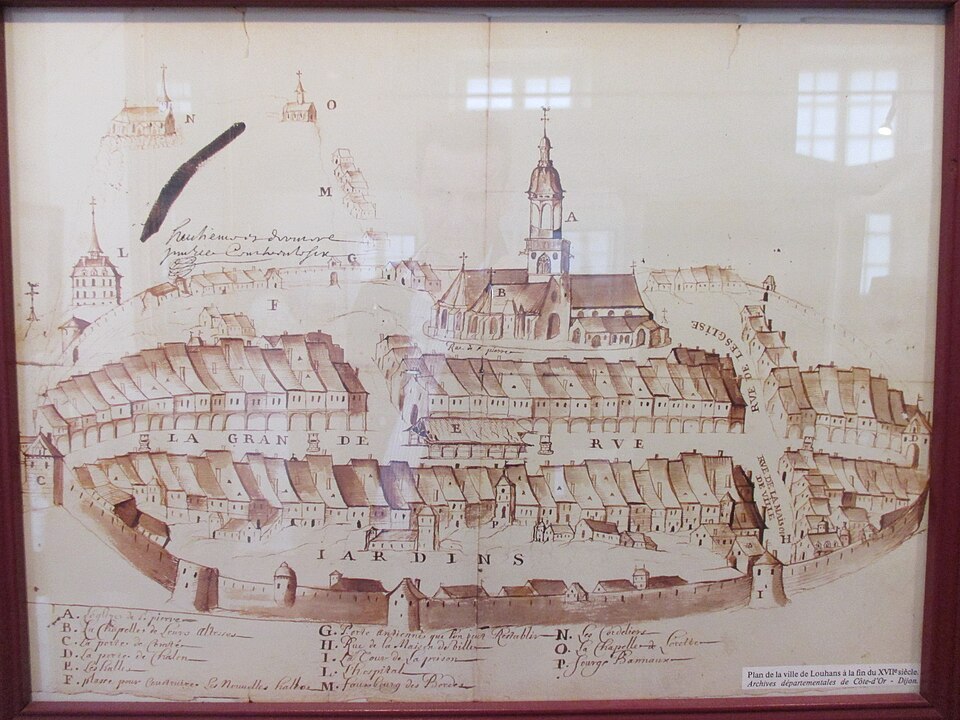 N
O
M
A
L
G
F
B
Rue de S. pierre
RVE DE LESGLISE
LA GRAN DE RVE
E
C
RVE DE LA MAISON DE VILLE
P
H
IARDINS
I
A. Leglise de S. pierre
B. La Chapelle de Leurs altesses
C. La porte de
D. La porte de Chalon
E. Les halles
F. place pour Construire Les Nouvelles halles
G. Porte antienne que lon peut Restablir
H. Rue de la Maison de Ville
I. La Tour de La prison
L. Lhospital
M. fourbourg des Bordes
N. les Cordeliers
O. La Chapelle de Lorette
P. fourgs Bannaux
Plan de la ville de Louhans à la fin du XVIIe siècle.
Archives départementales de Côte-d'Or - Dijon.